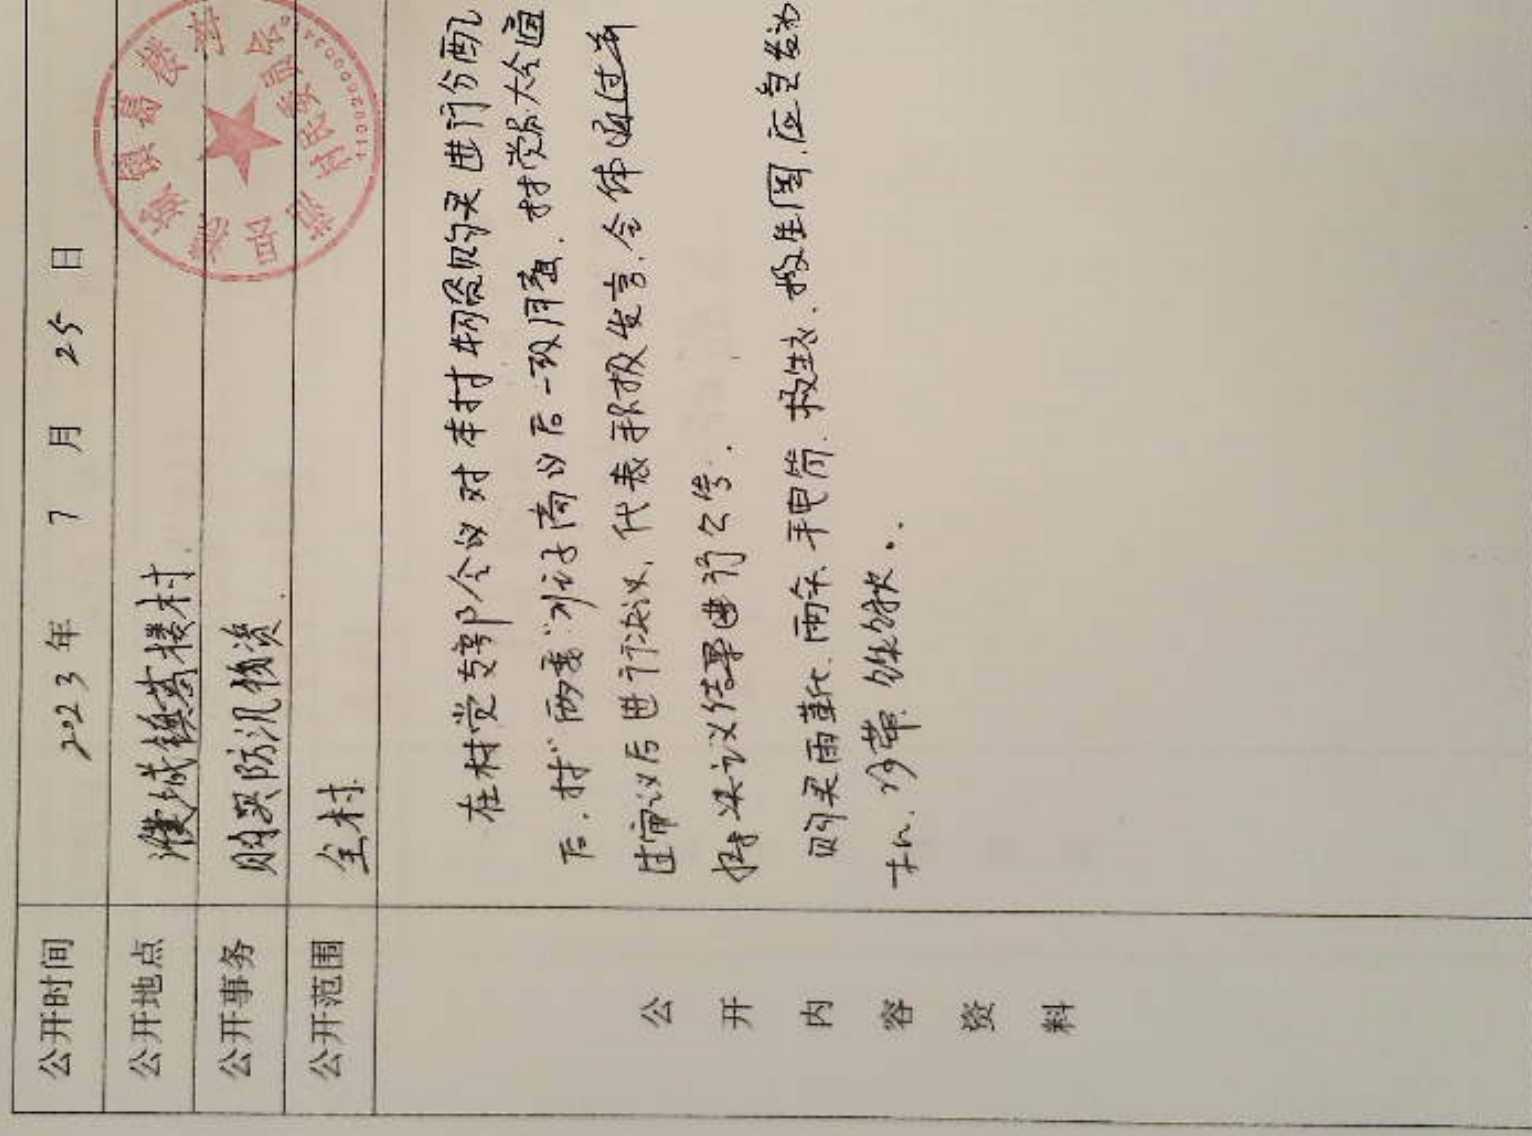 公开时间 2023年 7 月 25 日
公开地点 濮城镇葛楼村.
公开事务 购买防汛物资.
公开范围 全村
公开内容资料
在村党支部会议对本村物资购买进行分配
后.村"两委"班子商议后一致同意.村党员大会通
过审议后进行决议,代表积极发言.全体通过并
将决议结果进行公告.
购买雨靴.雨伞.手电筒.救生衣.救生圈.应急发动
机.沙袋
范县濮城镇葛楼村
村民委员会